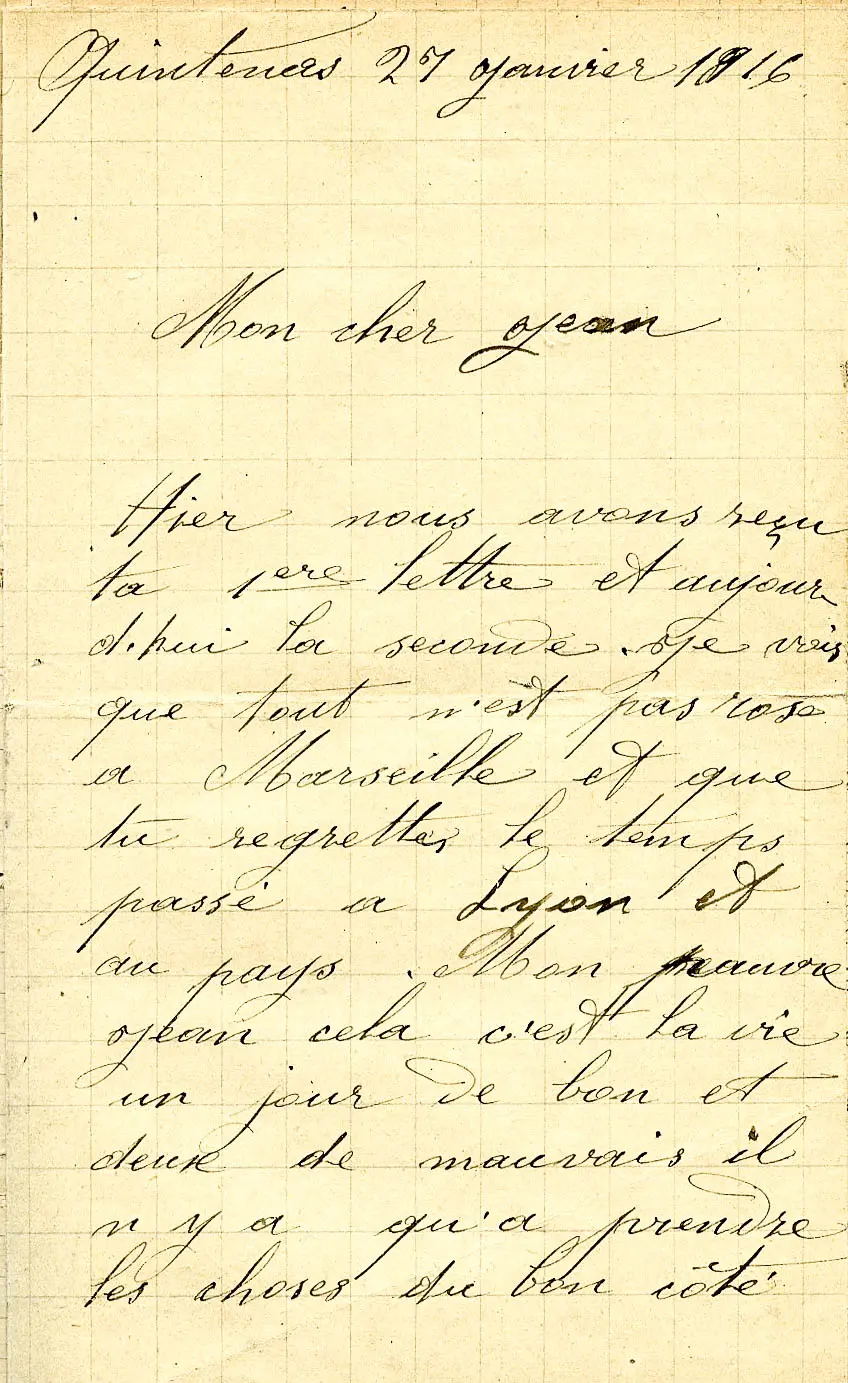 Quintenas 27 Janvier 1916
Mon cher Jean
Hier nous avons reçu
ta 1ere lettre et aujour
d'hui la seconde. Je vois
que tout n'est pas rose
a Marseille et que
tu regrettes le temps
passé a Lyon et
au pays. Mon pauvre
Jean cela c'est la vie
un jour de bon et
deux de mauvais il
n y a qu'a prendre
les choses du bon côté